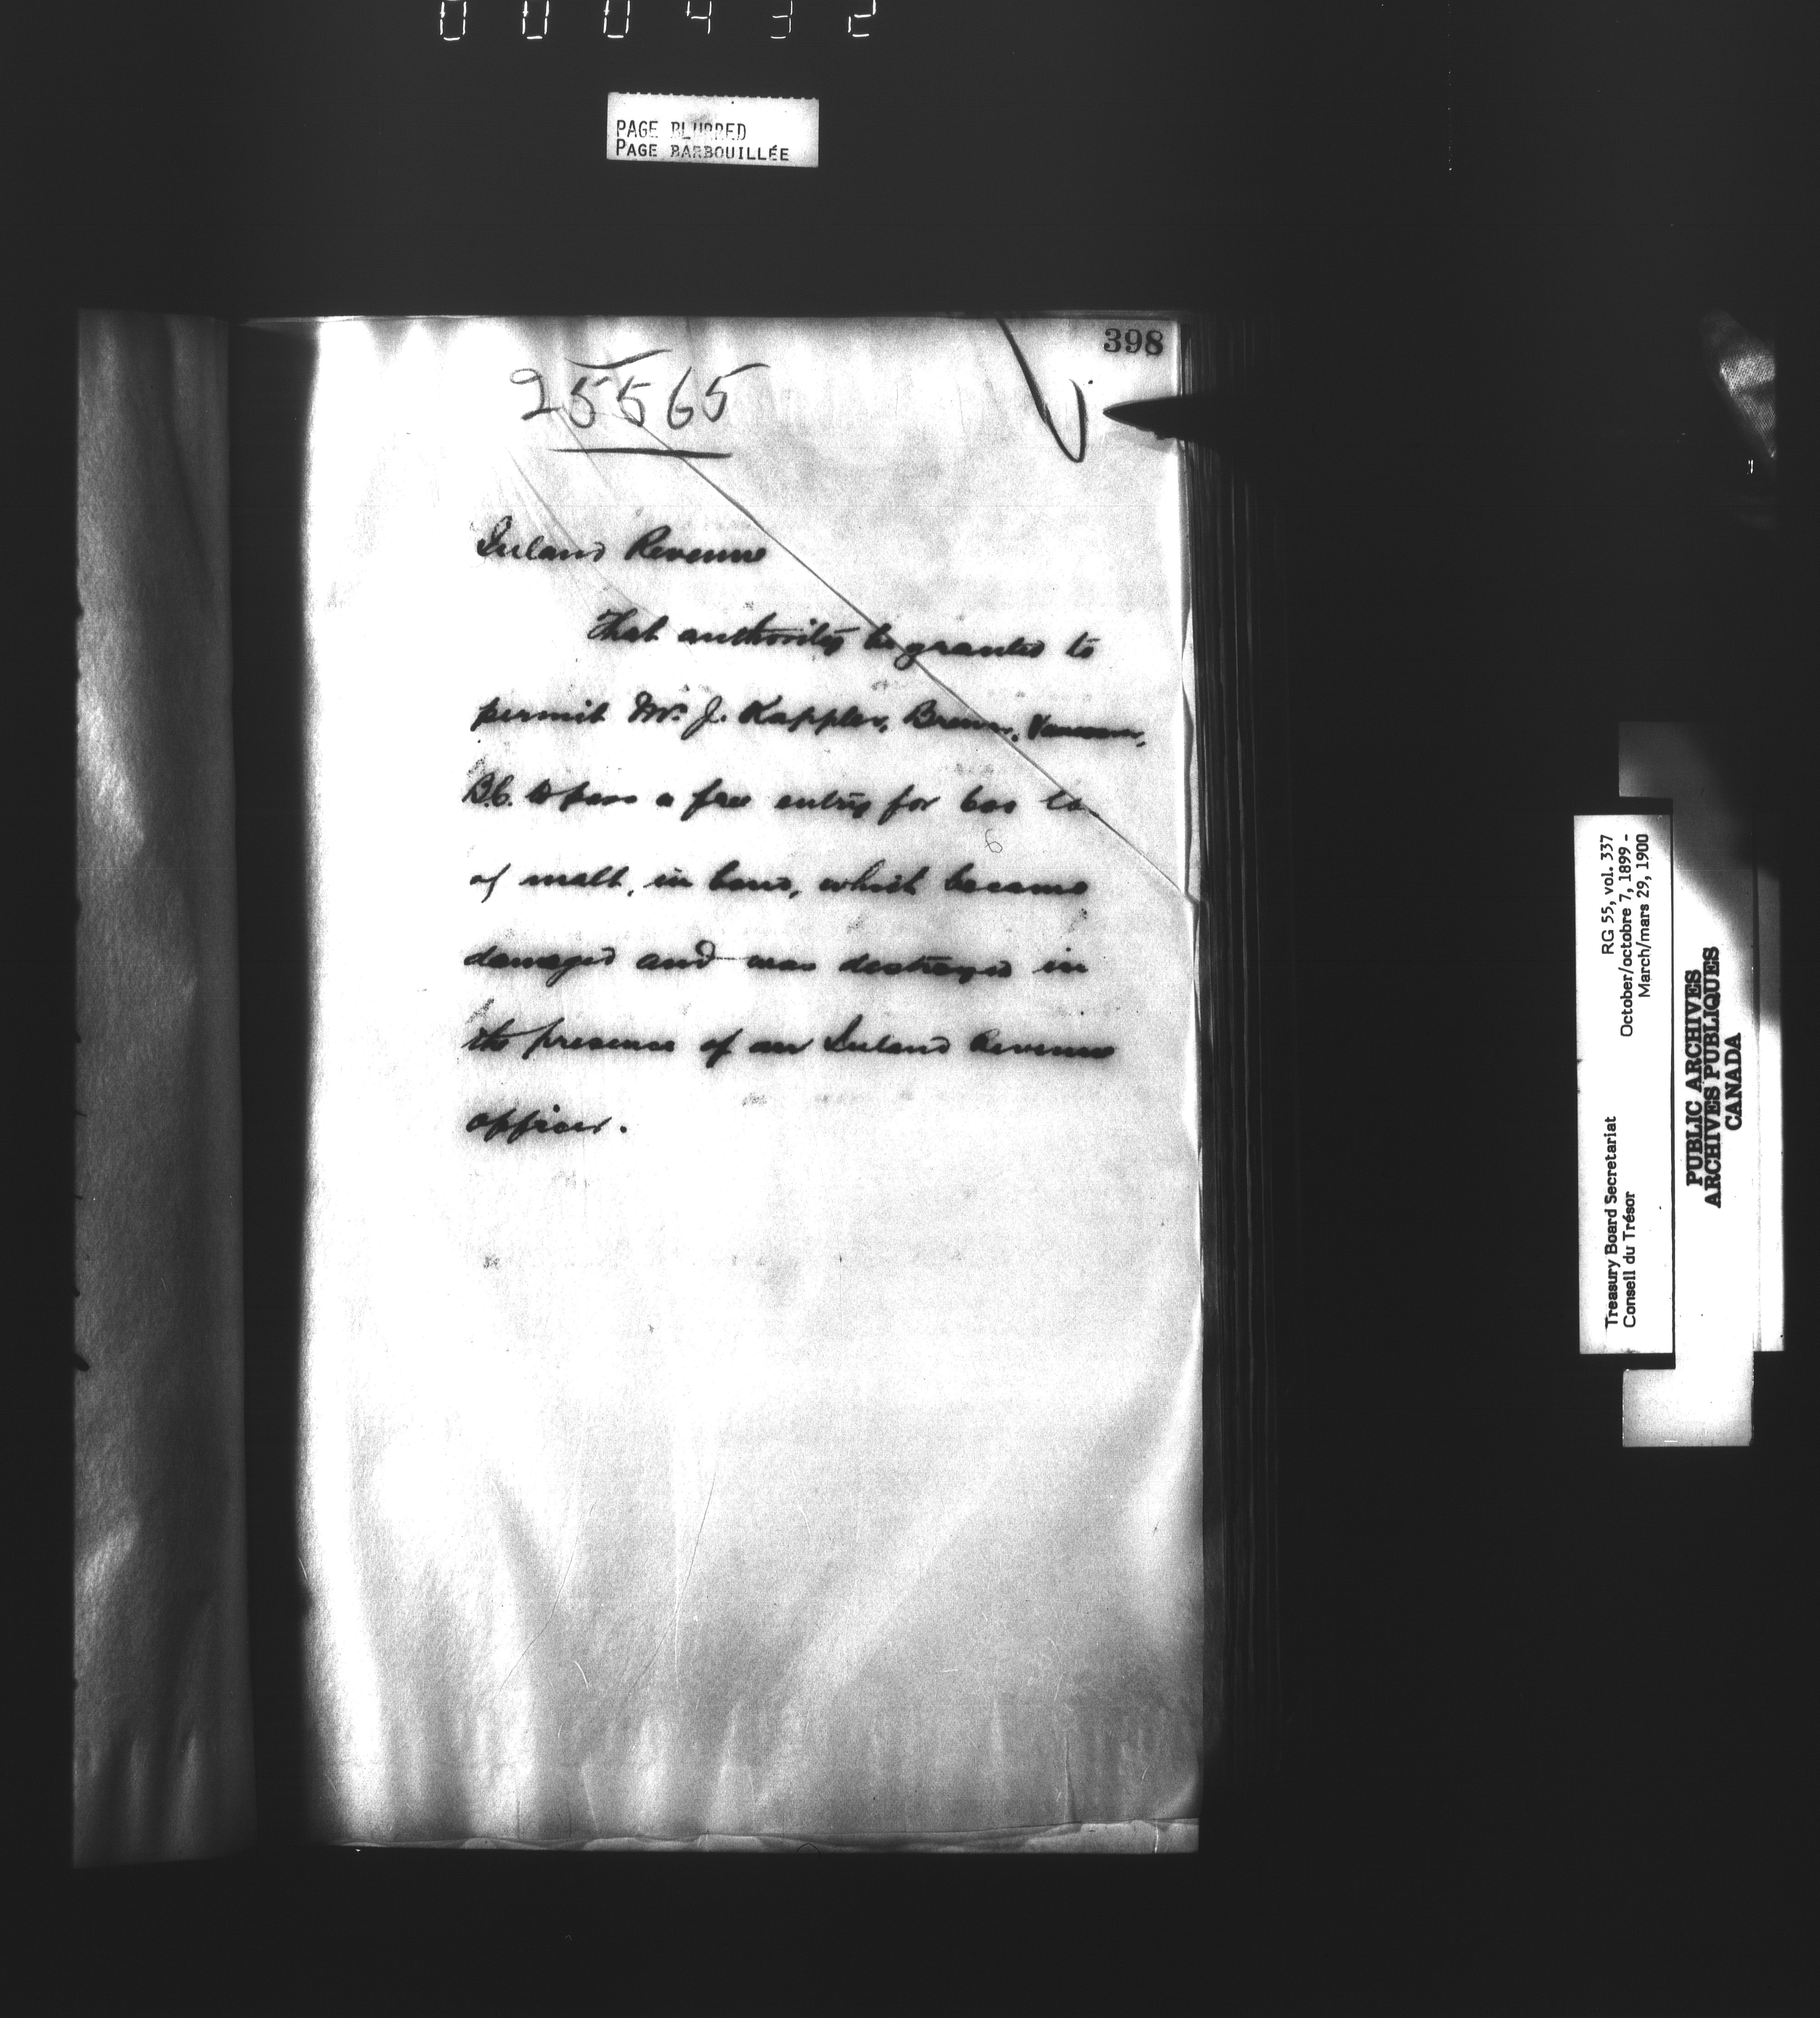 000432
PAGE BLURRED
PAGE BARBOUILLÉE
398
25565
Inland Revenue
That authority be granted to
permit Mr. J. Kappler, Brewer, Vancouver,
B.C. to pass a free entry for 600 lbs
6
of malt, in bond, which became
damaged and was destroyed in
the presence of an Inland Revenue
officer.
RG 55, vol. 337
October/octobre 7, 1899 -
March/mars 29, 1900
Treasury Board Secretariat
Conseil du Trésor
PUBLIC ARCHIVES
ARCHIVES PUBLIQUES
CANADA